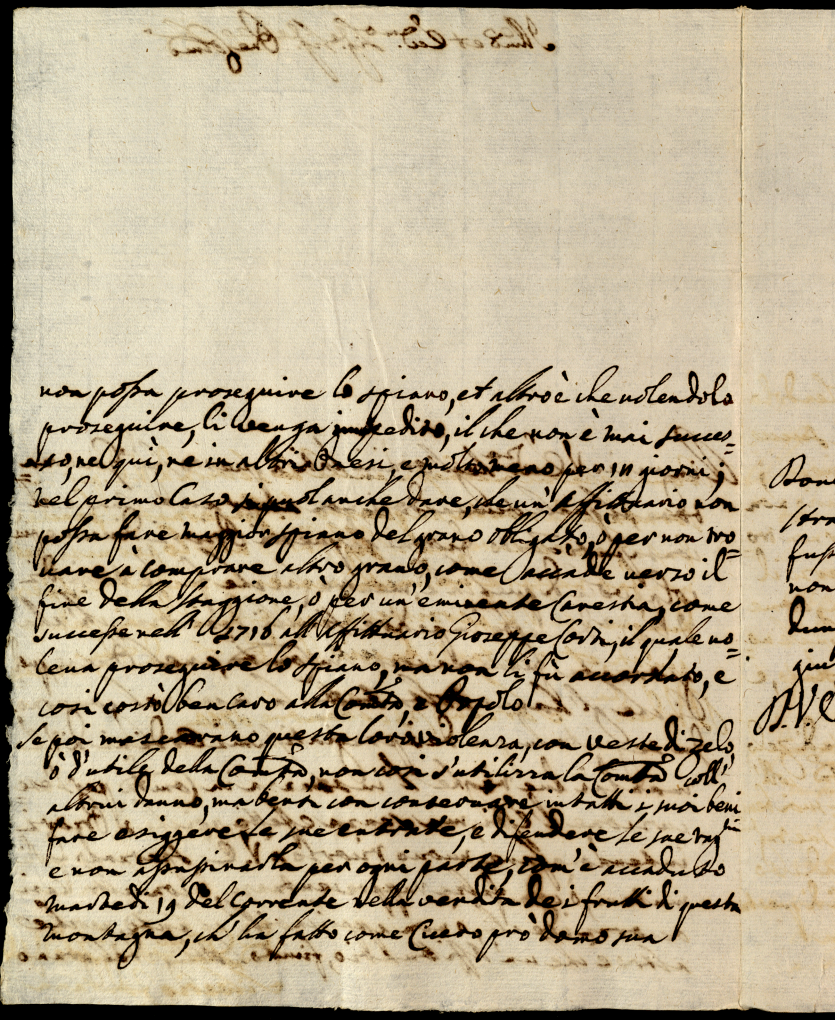 non possa proseguire lo spiano, et altro è che volendolo
proseguire, li venga impedito, il che non è mai succes=
=so, ne quì, ne in altri Paesi, e molto meno per in giorni;
nel primo Caso si può anche dare, che un' Affittuario non
possa fare maggior spiano del grano obligato, ò per non tro=
vare à comprare altro grano, come accade verso il
fine della Staggione, ò per un' eminente Carestia, come
successe nell' 1716 all' Affittuario Gioseppe Corsi, il quale vo=
leva proseguire lo spiano, ma non li fù accordato, e
così costò ben caro alla Comtà, e Popolo
Se poi mascherano questa loro violenza, con veste di zelo,
ò d'utile della Comtà, non così s'utilizza la Comtà coll'
altrui danno, ma bensì con conservare intatti i suoi beni
fare esiggere le sue entrate, e difendere le sue ragni
e non assassinarla per ogni parte, com' è accaduto
Martedì 19 del Corrente nella vendita de i frutti di questa
Montagna, ch' ha fatto come Cicero prò domo sua
Pone
stra
fuss
non
dun
giu